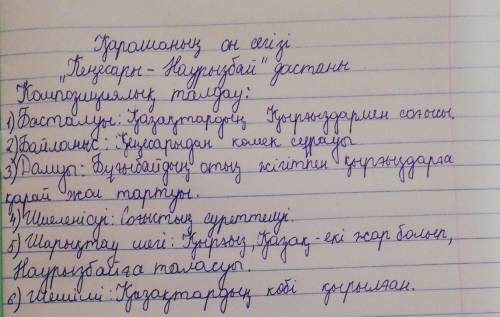 Қарашаның он сегізі
„Кенесары - Наурызбай" дастаны
Композициялық талдау:
1) Басталуы: Қазақтардың Қырғыздармен соғысы.
2) Байланыс: Кенесарыдан көмек сұрауы
3) Дамуы: Бұғыбайдың отыз жігітпен қырғыздарға
қарай жол тартуы.
4) Шиеленісуі: Соғыстың суреттелуі.
5) Шарықтау шегі: Қырғыз, Қазақ - екі жар болып,
Наурызбайға таласуы.
6) Шешімі: Қазақтардың көбі қырылған.